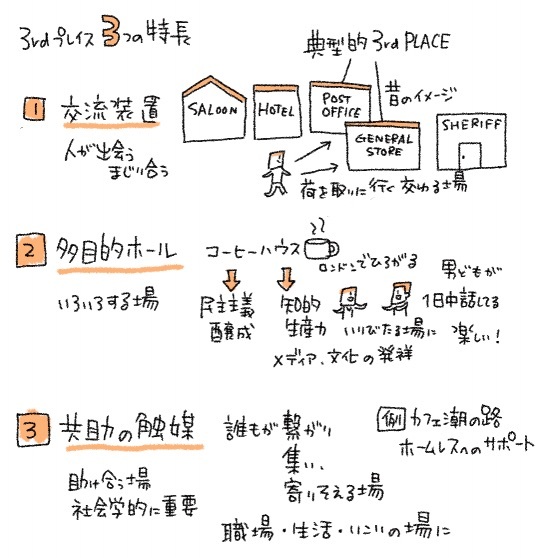 3rdプレイス 3つの特長
典型的 3rd PLACE
1 交流装置
人が出会う
まじり合う
SALOON
HOTEL
POST
OFFICE
昔のイメージ
GENERAL
STORE
SHERIFF
荷を取りに行く 交わる場
2 多目的ホール
いろいろする場
コーヒーハウス
ロンドンでひろがる
民主主義
醸成
知的
生産力
いりびたる場に
メディア、文化の発祥
男どもが
1日中話してる
楽しい!
3 共助の触媒
助け合う場
社会学的に重要
誰もが繋がり
集い、
寄りそえる場
例 カフェ潮の路
ホームレスへのサポート
職場・生活・いこいの場に